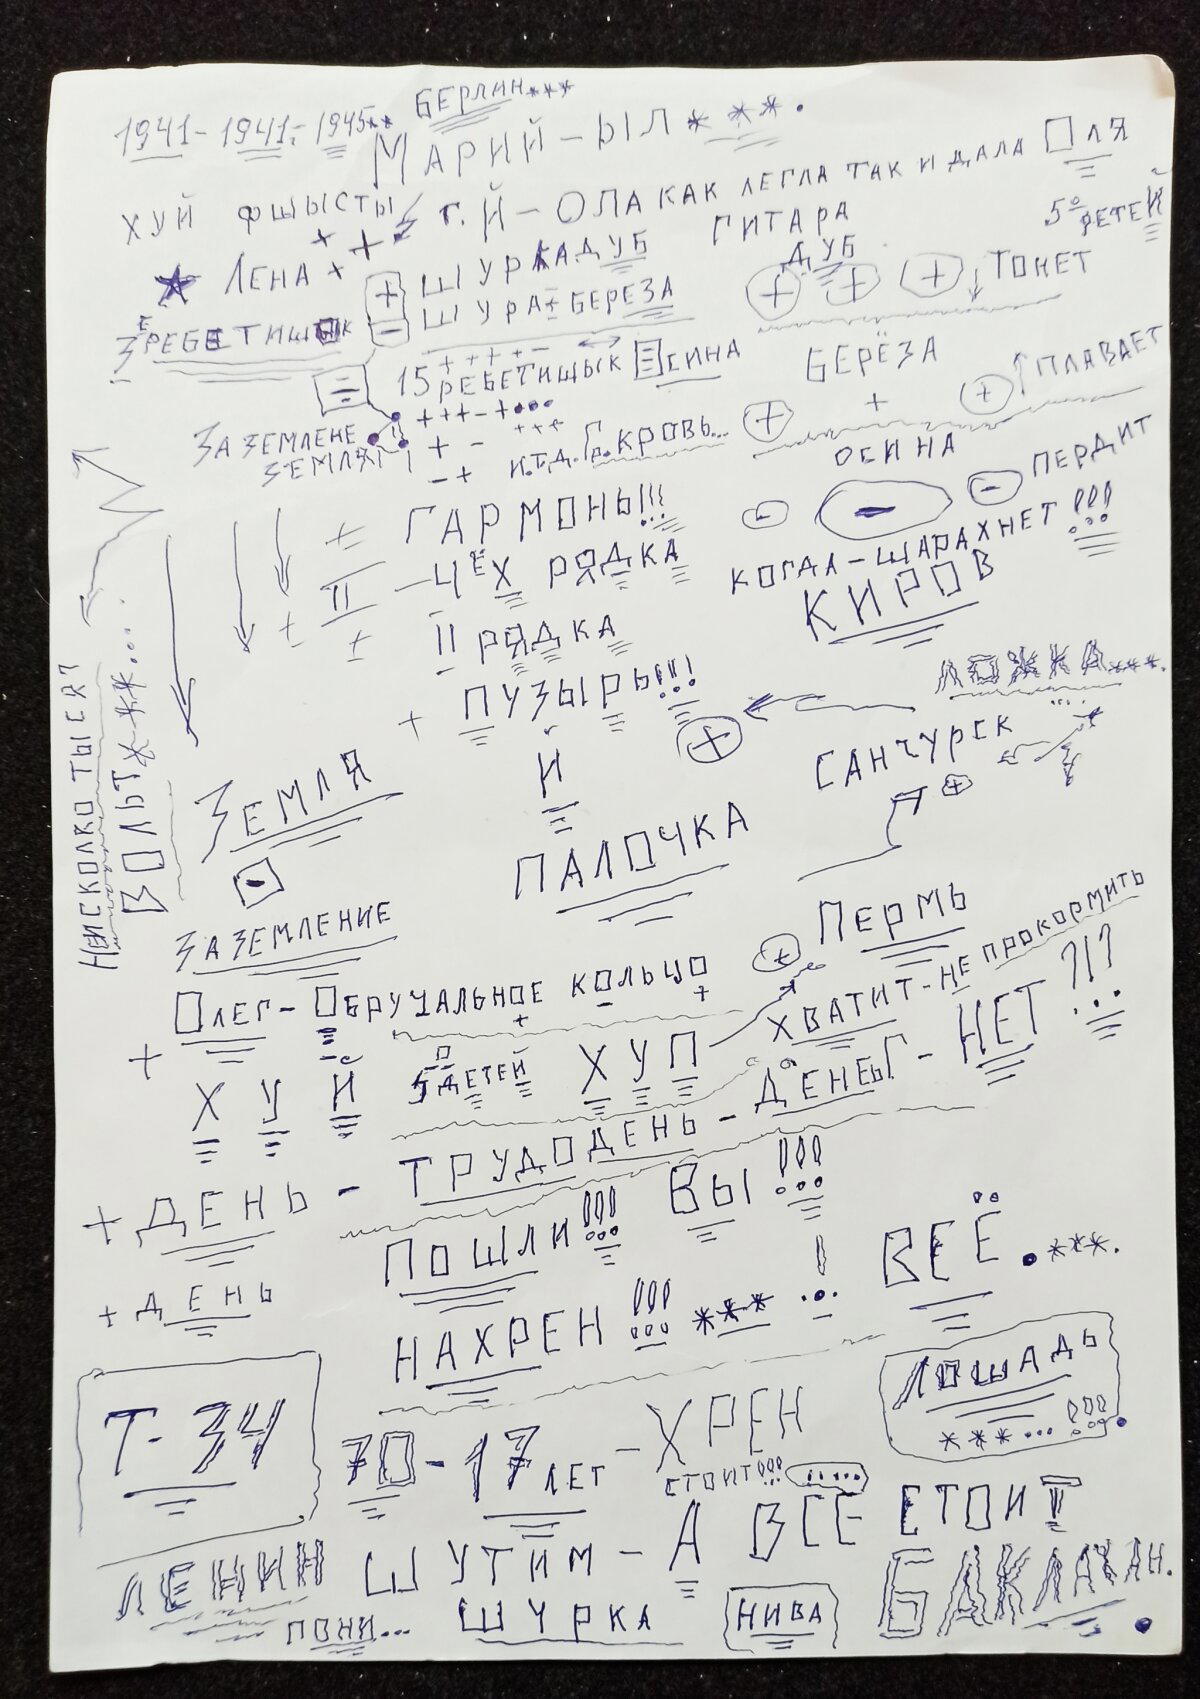 1941 - 1941 - 1945** БЕРЛИН***
МАРИЙ-ЫЛ* **.
ХУЙ ФШЫСТЫ г. Й-ОЛА КАК ЛЕГЛА ТАК И ДАЛА ОЛЯ
ЛЕНА + ШУРКАДУБ ГИТАРА
ДУБ
+ ШУРА± БЕРЕЗА + + + ↓ ТОНЕТ
-
15 РЕБЕТИЩЫК ОСИНА БЕРЁЗА + ↑ ПЛАВАЕТ
ЗАЗЕМЛЕНЕ
ЗЕМЛЯ
И.Т.Д. КРОВЬ... +
ОСИНА - ПЕРДИТ
ГАРМОНЬ!!!
КОГДА-ШАРАХНЕТ!!!
II - РЯДКА
КИРОВ
II РЯДКА
+ ПУЗЫРЬ!!! ЛОЖКА***.
И
САНЧУРСК
НЕИСКОЛКО ТЫСЯ?
ВОЛЬТ****...
ЗЕМЛЯ
-
ПАЛОЧКА
ЗАЗЕМЛЕНИЕ
+ ПЕРМЬ
+ ОЛЕГ-ОБРУЧАЛЬНОЕ КОЛЬЦО
ХВАТИТ-НЕ ПРОКОРМИТЬ
ХУЙ 5 ДЕТЕЙ ХУП
+ ДЕНЬ - ТРУДОДЕНЬ - ДЕНЕГ - НЕТ ?!?
+ ДЕНЬ
ПОШЛИ!!! ВЫ!!!
НАХРЕН!!! *** ! ВСЁ.***.
Т-34
ЛОШАДЬ
***...!!!.
70-17 ЛЕТ - ХРЕН
СТОИТ!!! .....
ЛЕНИН ШУТИМ - А ВСЕ СТОИТ
ПОНИ... ШУРКА НИВА БАКЛАЖАН.